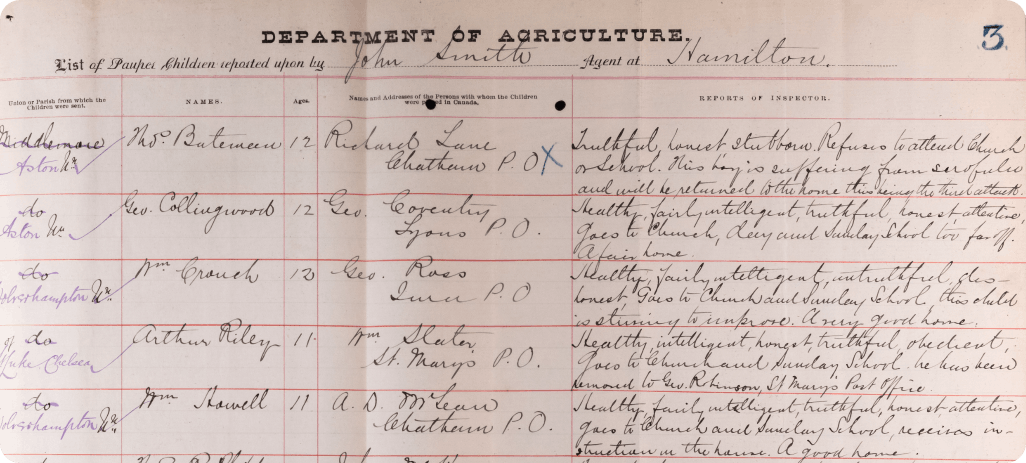 3
DEPARTMENT OF AGRICULTURE.
List of Pauper Children reported upon by John Smith Agent at Hamilton.
Union or Parish from which the Children were sent.
NAMES.
Ages.
Names and Addresses of the Persons with whom the Children were placed in Canada,
REPORTS OF INSPECTOR.
Middlemore
Aston Un
Thos. Bateman 12 Richard Lane
Chatham P.O X
Truthful, honest stubborn. Refuses to attend Church
or School. This boy is suffering from scrofula
and will be returned to the home this being the third attack.
do
Aston Un
Geo. Collingwood 12 Geo. Coventry
Lyons P.O.
Healthy, fairly intelligent, truthful, honest, attentive
Goes to Church, Day and Sunday School too far off.
A fair home.
do
Wolverhampton Un
Wm Crouch 12 Geo. Ross
P.O
Healthy, fairly intelligent, untruthful, dis-
honest, Goes to Church and Sunday School, this child
is striving to improve. A very good home.
do
Luke Chelsea
Arthur Riley 11 Wm Slater
St. Mary's P.O.
Healthy, intelligent, honest, truthful, obedient,
Goes to Church and Sunday School. he has been
removed to Geo. Robinson, St Mary's Post Office.
do
Wolverhampton Un
Wm Howell 11 A. D. McLean
Chatham P.O.
Healthy, fairly intelligent, truthful, honest attentive,
goes to Church and Sunday School, receives in-
struction in the house. A good home.